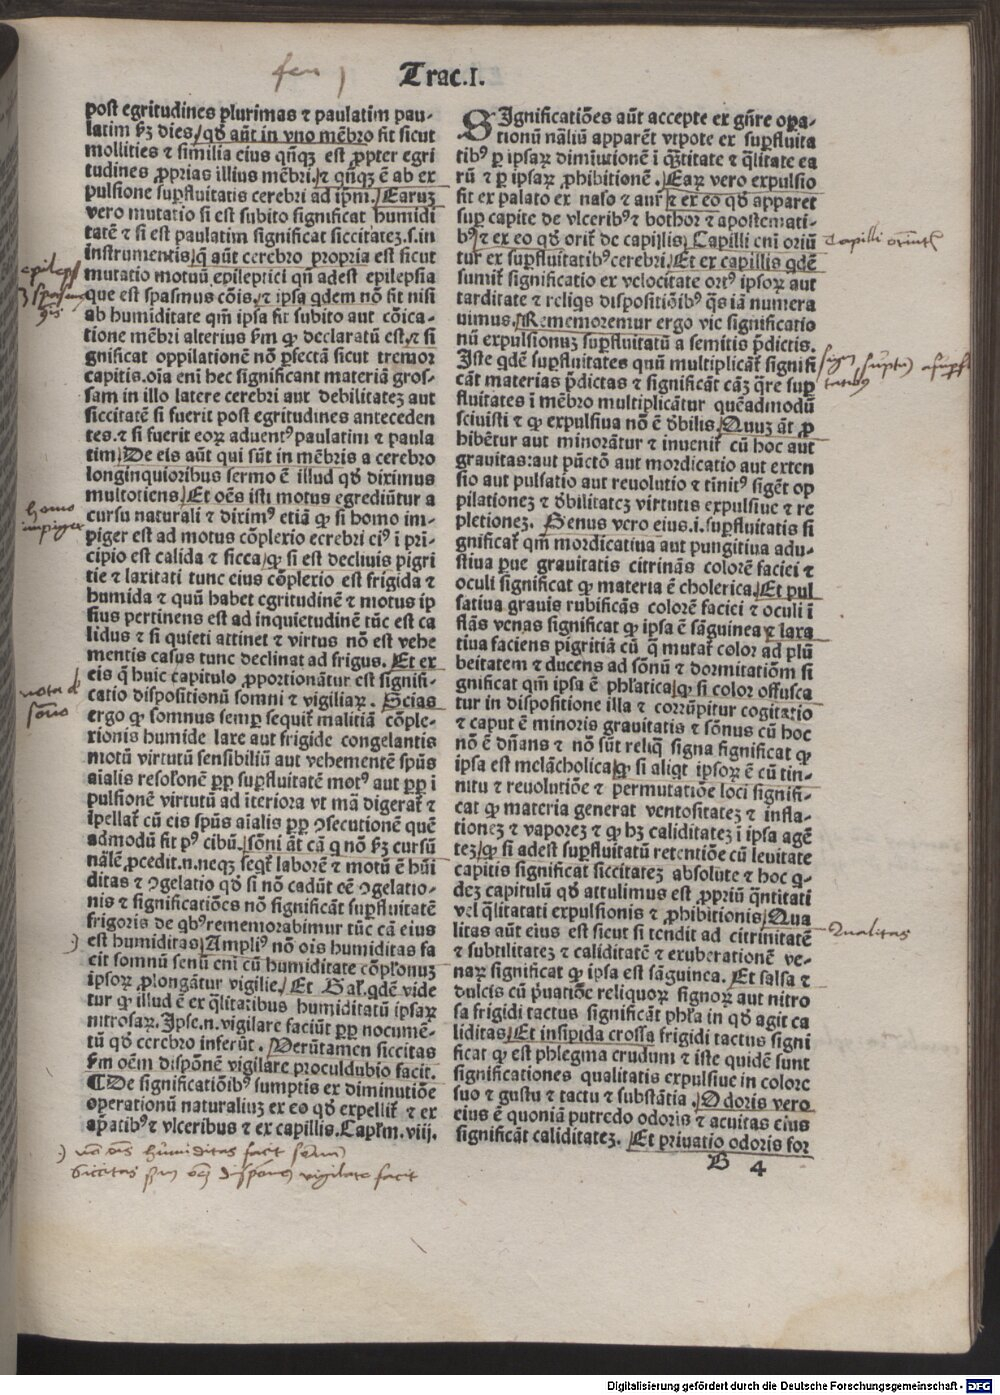 Trac.I.
post egritudines plurimas ⁊ paulatim pau-
latim ẜꝫ dies, qđ aūt in vno mēbro fit sicut
mollities ⁊ similia eius qñqꝫ est ꝓpter egri
tudines ꝓprias illius mēbri. ⁊ qñqꝫ ē ab ex
pulsione supfluitatis cerebri ad ipm. Earuꝫ
vero mutatio si est subito significat humidi
tatē ⁊ si est paulatim significat siccitateꝫ.s.in
instrumentis, q̄ aūt cerebro propria est sicut
mutatio motuū epileptici qñ adest epilepsia
que est spasmus cōis, ⁊ ipsa qdem nō fit nisi
ab humiditate qm̄ ipsa fit subito aut cōica-
tione mēbri alterius ẜm ꝙ declaratū est, ⁊ si
gnificat oppilationē nō ꝑfectā sicut tremor
capitis. oīa eni hec significant materiā gros-
sam in illo latere cerebri aut debilitateꝫ aut
siccitatē si fuerit post egritudines anteceden
tes. ⁊ si fuerit eoꝝ aduentꝰ paulatim ⁊ paula
tim, De eis aūt qui sūt in mēbris a cerebro
longinquioribus sermo ē illud qđ diximus
multotiens, Et oēs isti motus egrediūtur a
cursu naturali ⁊ diximꝰ etiā ꝙ si homo im-
piger est ad motus cōplexio cerebri eiꝰ ī pri-
cipio est calida ⁊ sicca, ꝙ si est decliuis pigri
tie ⁊ laxitati tunc eius cōplexio est frigida ⁊
humida ⁊ quū habet egritudinē ⁊ motus ip
sius pertinens est ad inquietudinē tūc est ca
lidus ⁊ si quieti attinet ⁊ virtus nō est vehe
mentis casus tunc declinat ad frigus. Et ex
eis q̄ huic capitulo ꝓportionātur est signifi-
catio dispositionū somni ⁊ vigiliaꝝ. Scias
ergo ꝙ somnus semp sequit̄ malitiā cōple-
xionis humide laxe aut frigide congelantis
motū virtutū sensibiliū aut vehementē spūs
aialis resolonē ꝓp supfluitatē motꝰ aut ꝓp ī
pulsionē virtutū ad īteriora vt mā digerat̄ ⁊
īpellat̄ cū eis spūs aialis ꝓp ꝯsecutionē quē
admodū fit pꝰ cibū. sōni āt cā q nō ẜꝫ cursū
nālē ꝓcedit.n.neqꝫ seqt̄ laborē ⁊ motū ē hūi
ditas ⁊ ꝯgelatio qđ si nō cadūt cē ꝯgelatio-
nis ⁊ significatiōes nō significāt supfluitatē
frigoris de qbꝰ rememorabimur tūc cā eius
est humiditas. Ampliꝰ nō ois humiditas fa
cit somnū senū eni cū humiditate cōplonuꝫ
ipsoꝝ ꝓlongātur vigilie. Et Gal. qdē vide
tur ꝙ illud ē ex qlitatibus humiditatū ipsaꝝ
nitrosaꝝ. Ipse.n. vigilare faciūt ꝓp nocumē-
tū qđ cerebro inferūt. Verūtamen siccitas
ẜm oēm dispōnē vigilare proculdubio facit.
¶De significatiōibꝰ sumptis ex diminutiōe
operationū naturaliuꝫ ex eo qđ expellit̄ ⁊ ex
apatibꝰ ⁊ vlceribus ⁊ ex capillis. Caplm. viij.
SIgnificatiōes aūt accepte ex gn̄re opa-
tionū naliū apparēt vtpote ex supfluita
tibꝰ p ipsaꝝ diminutionē ī qtitate ⁊ qlitate ea
rū ⁊ p ipsaꝝ ꝓhibitionē. Eaꝝ vero expulsio
fit ex palato ex naso ⁊ aur̄ ⁊ ex eo qđ apparet
sup capite de vlceribꝰ ⁊ bothor ⁊ apostemati-
bꝰ ⁊ ex eo qđ orit̄ de capillis, Capilli eni oriū
tur ex supfluitatibꝰ cerebri, Et ex capillis qdē
sumit̄ significatio ex velocitate ortꝰ ipsoꝝ aut
tarditate ⁊ reliqs dispositiōibꝰ qs iā numera
uimus. Rememoremur ergo vie significatio
nū expulsionuꝫ supfluitatū a semitis p̄dictis.
Iste qdē supfluitates quū multiplicāt̄ signifi
cāt materias p̄dictas ⁊ significāt cāꝫ qre sup
fluitates ī mēbro multiplicātur quēadmodū
sciuisti ⁊ ꝙ expulsiua nō ē đbilis. Quuꝫ āt ꝓ
hibētur aut minorātur ⁊ inuenit̄ cū hoc aut
grauitas: aut pūctō aut mordicatio aut exten
sio aut pulsatio aut reuolutio ⁊ tinitꝰ sigēt op
pilationeꝫ ⁊ đbilitateꝫ virtutis expulsiue ⁊ re
pletioneꝫ. Genus vero eius.i.supfluitatis si
gnificat̄ qm̄ mordicatiua aut pungitiua adu-
stiua pue grauitatis citrinās colorē faciei ⁊
oculi significat ꝙ materia ē cholerica. Et pul
satiua grauis rubificās colorē faciei ⁊ oculi ī
flās venas significat ꝙ ipsa ē sāguinea ⁊ laxa
tiua faciens pigritiā cū q mutat̄ color ad plū
beitatem ⁊ ducens ad sōnū ⁊ dormitatiōm si
gnificat qm̄ ipsa ē phlatica, ꝙ si color offusca
tur in dispositione illa ⁊ corrūpitur cogitatio
⁊ caput ē minoris grauitatis ⁊ sōnus cū hoc
nō ē dn̄ans ⁊ nō sūt reliq signa significat ꝙ
ipsa est melācholica, ꝙ si aliqt ipsoꝝ ē cū tin-
nitu ⁊ reuolutiōe ⁊ permutatiōe loci signifi-
cat ꝙ materia generat ventositateꝫ ⁊ infla-
tioneꝫ ⁊ vaporeꝫ ⁊ ꝙ hꝫ caliditateꝫ ī ipsa agē
teꝫ, ꝙ si adest supfluitatū retentiōe cū leuitate
capitis significat siccitateꝫ absolute ⁊ hoc q-
deꝫ capitulū qđ attulimus est ꝓpriū qntitati
vel qlitatati expulsionis ⁊ ꝓhibitionis, Qua
litas aūt eius est sicut si tendit ad citrinitatē
⁊ subtilitateꝫ ⁊ caliditatē ⁊ exuberationē ve-
naꝝ significat ꝙ ipsa est sāguinea. Et salsa ⁊
dulcis cū p̄uatiōe reliquoꝝ signoꝝ aut nitro
sa frigidi tactus significāt phla in qđ agit ca
liditas, Et insipida crossa frigidi tactus signi
ficat ꝙ est phlegma crudum ⁊ iste quidē sunt
significationes qualitatis expulsiue in colore
suo ⁊ gustu ⁊ tactu ⁊ substātia. Odoris vero
eius ē quoniā putredo odoris ⁊ acuitas eius
significāt caliditateꝫ. Et priuatio odoris for
B 4
homo
impiger
nota de
sōno
Qualitas
Digitalisierung gefördert durch die Deutsche Forschungsgemeinschaft - DFG